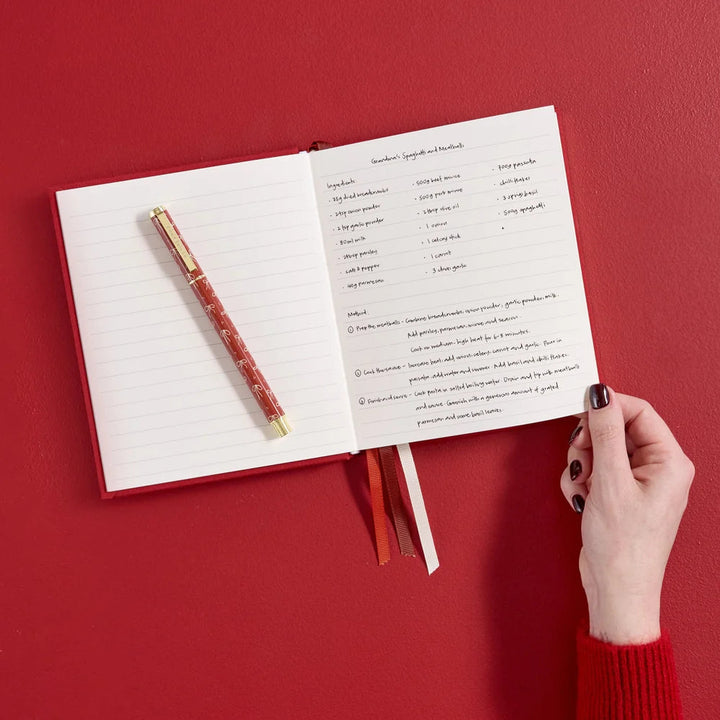 Grandma's Spaghetti and Meatballs
Ingredients
· 25g dried breadcrumbs
· 2 tsp onion powder
· 2 tsp garlic powder
· 80ml milk
parsley
· salt & pepper
· 40g parmesan
· 500g beef mince
· 500g pork mince
· 2 tbsp olive oil
· 1 onion
· 1 celery stick
· 1 carrot
· 3 cloves garlic
· 700g passata
· chilli flakes
· 3 sprigs basil
· 500g spaghetti
·
Method:
① Prep the meatballs - Combine breadcrumbs, onion powder, garlic powder, milk.
Add parsley, parmesan, mince, and season.
Cook on medium-high heat for 6-8 minutes.
② Cook the sauce - Increase heat, add onion, celery, carrot and garlic. Pour in
passata, add water and simmer. Add basil and chilli flakes.
③ Finish and sauce - Cook pasta in salted boiling water. Drain and top with meatballs
and sauce. Garnish with a generous amount of grated
parmesan and some basil leaves.